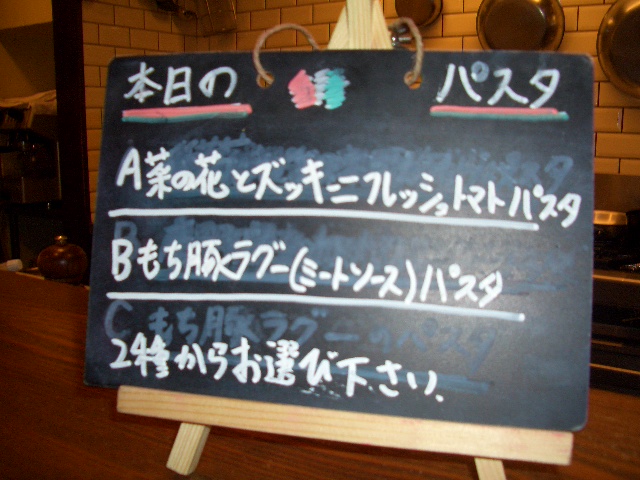 本日の パスタ
A菜の花とズッキーニフレッシュトマトパスタ
Bもち豚ラグー(ミートソース)パスタ
C もち豚ラグーのパスタ
2種からお選び下さい.